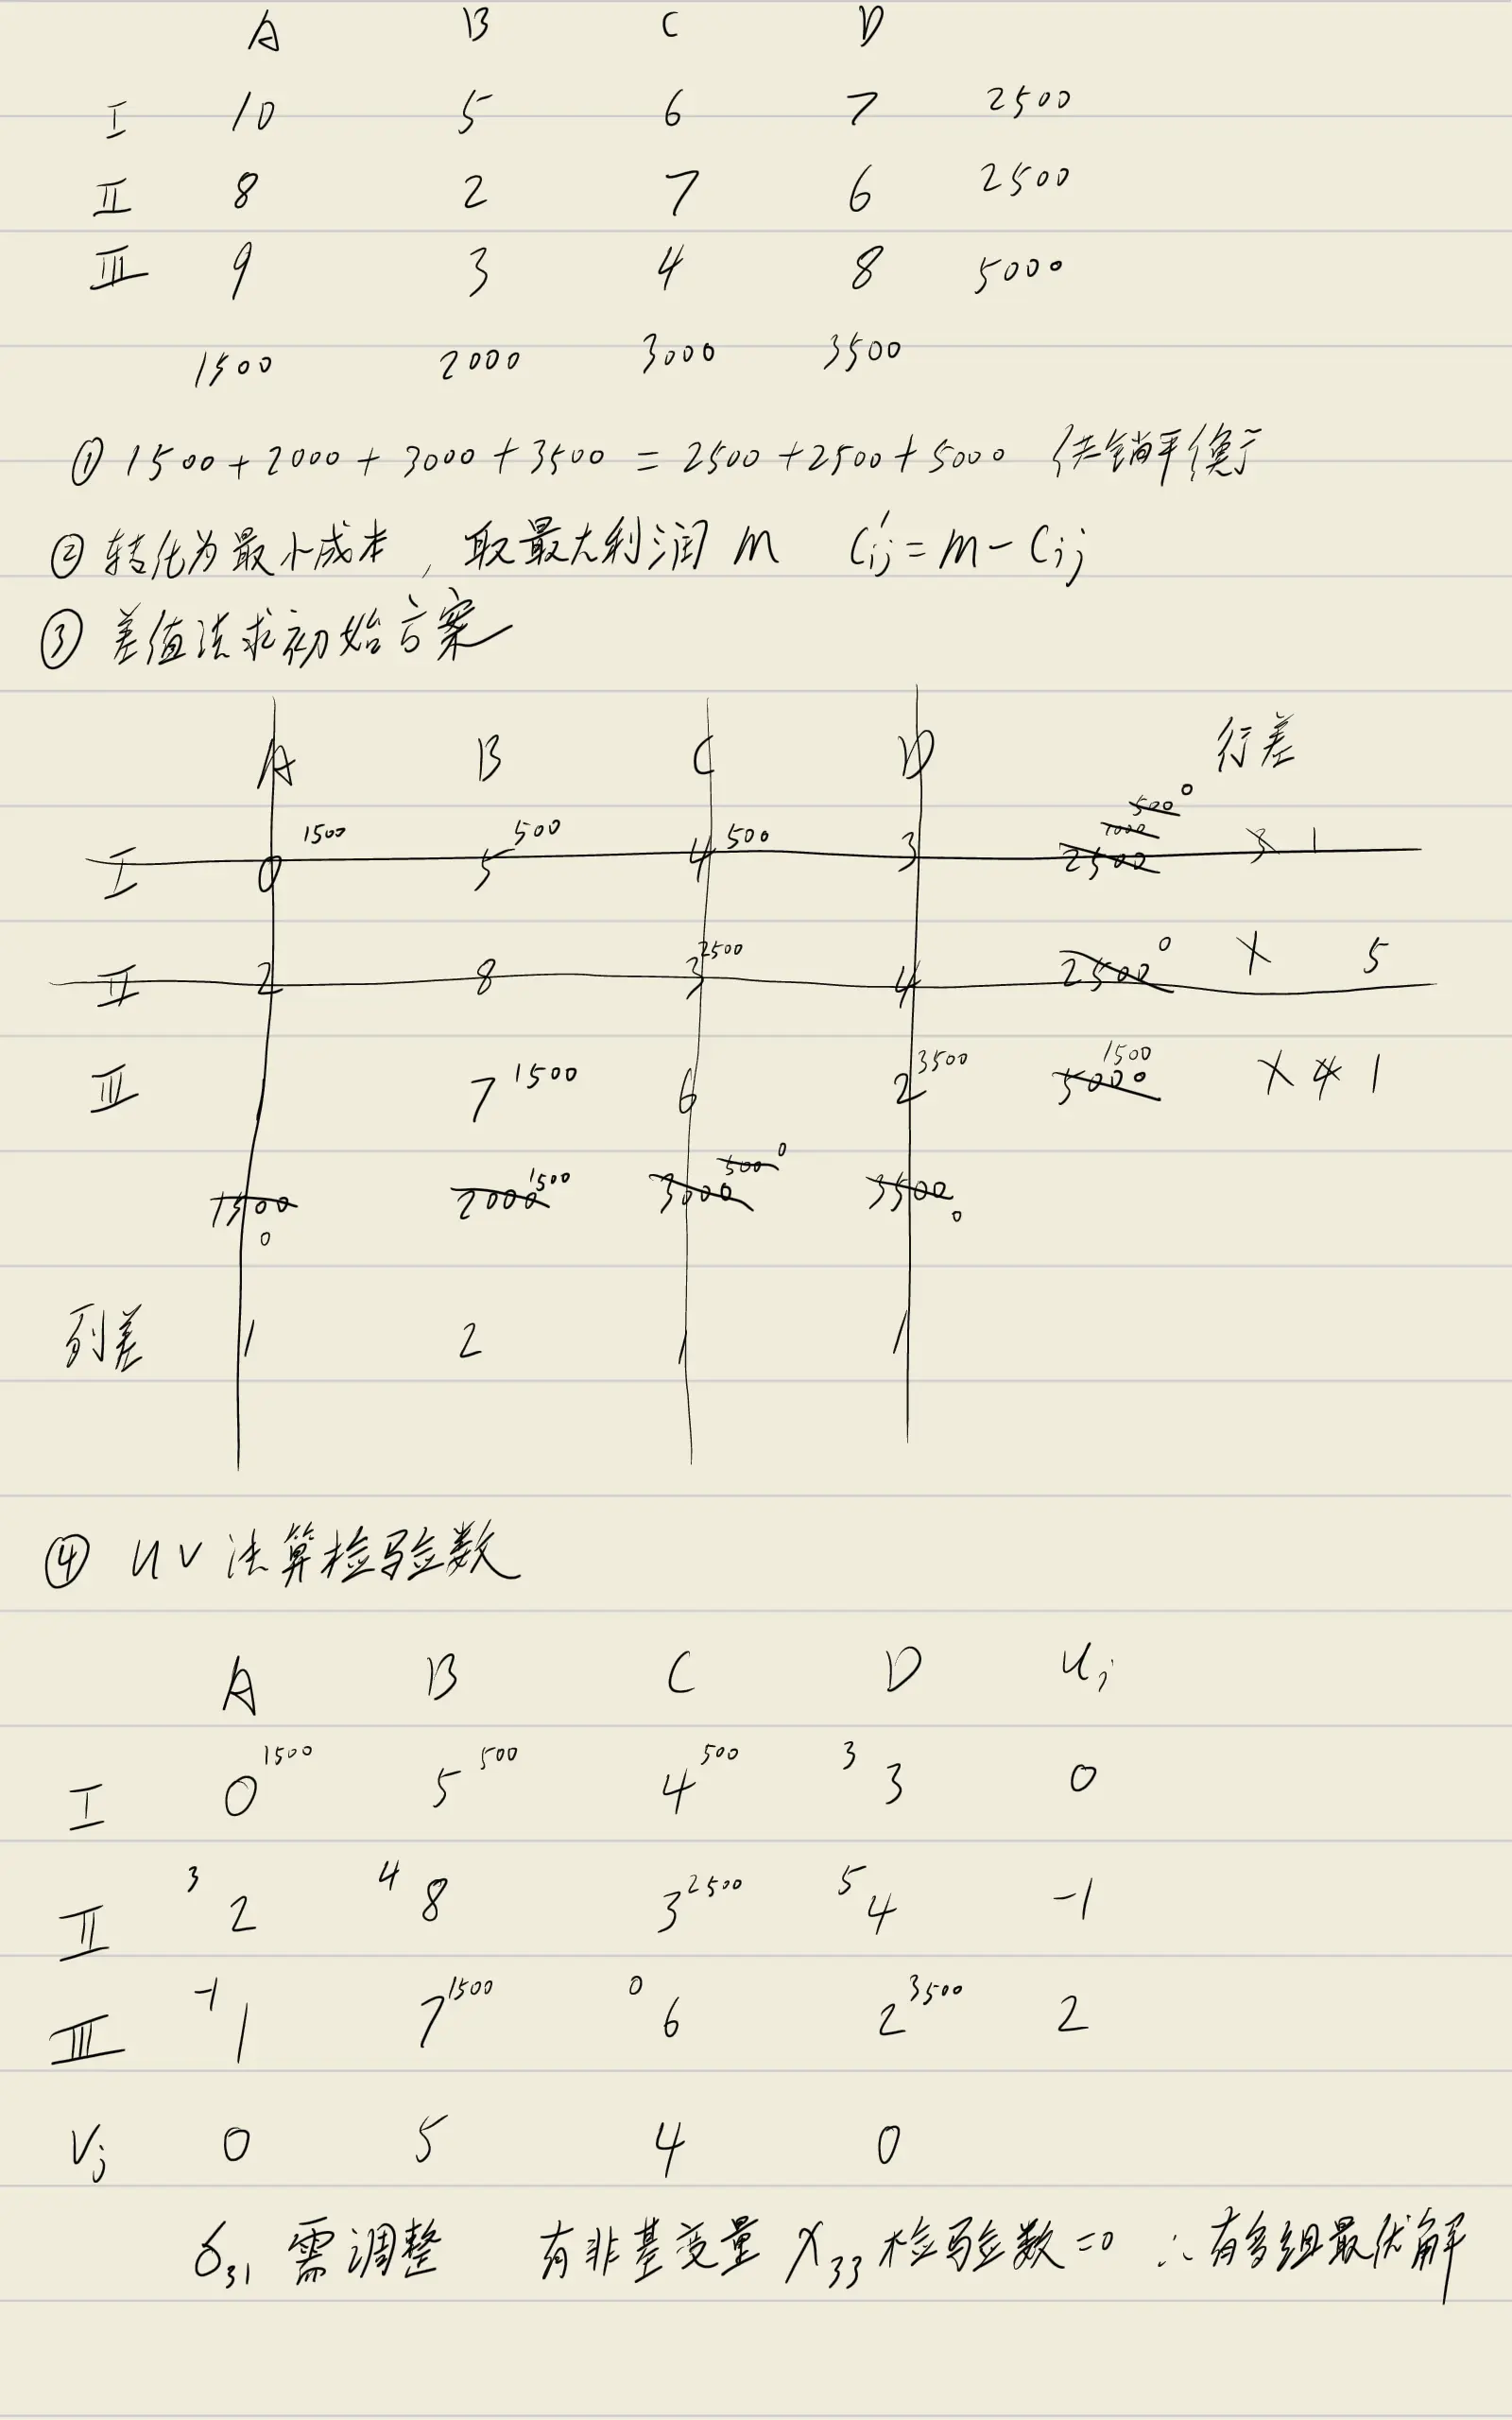 A B C D
I 10 5 6 7 2500
II 8 2 7 6 2500
III 9 3 4 8 5000
1500 2000 3000 3500
① 1500+2000+3000+3500=2500+2500+5000 供销平衡
② 转化为最小成本, 取最大利润 m C'ij=m-Cij
③ 差值法求初始方案
A B C D 行差
500 0
1000
I 0 1500 5 500 4 500 3 2500 3 1
II 2 8 3 2500 4 2500 0 1 5
III 1 7 1500 6 2 3500 5000 1500 1 4 1
1500 0 2000 1500 3000 500 0 3500 0
列差 1 2 1 1
④ uv法算检验数
A B C D ui
I 0 1500 5 500 4 500 3 3 0
II 3 2 4 8 3 2500 5 4 -1
III -1 1 7 1500 0 6 2 3500 2
Vj 0 5 4 0
δ31 需调整 有非基变量 X33 检验数=0 ∴有多组最优解